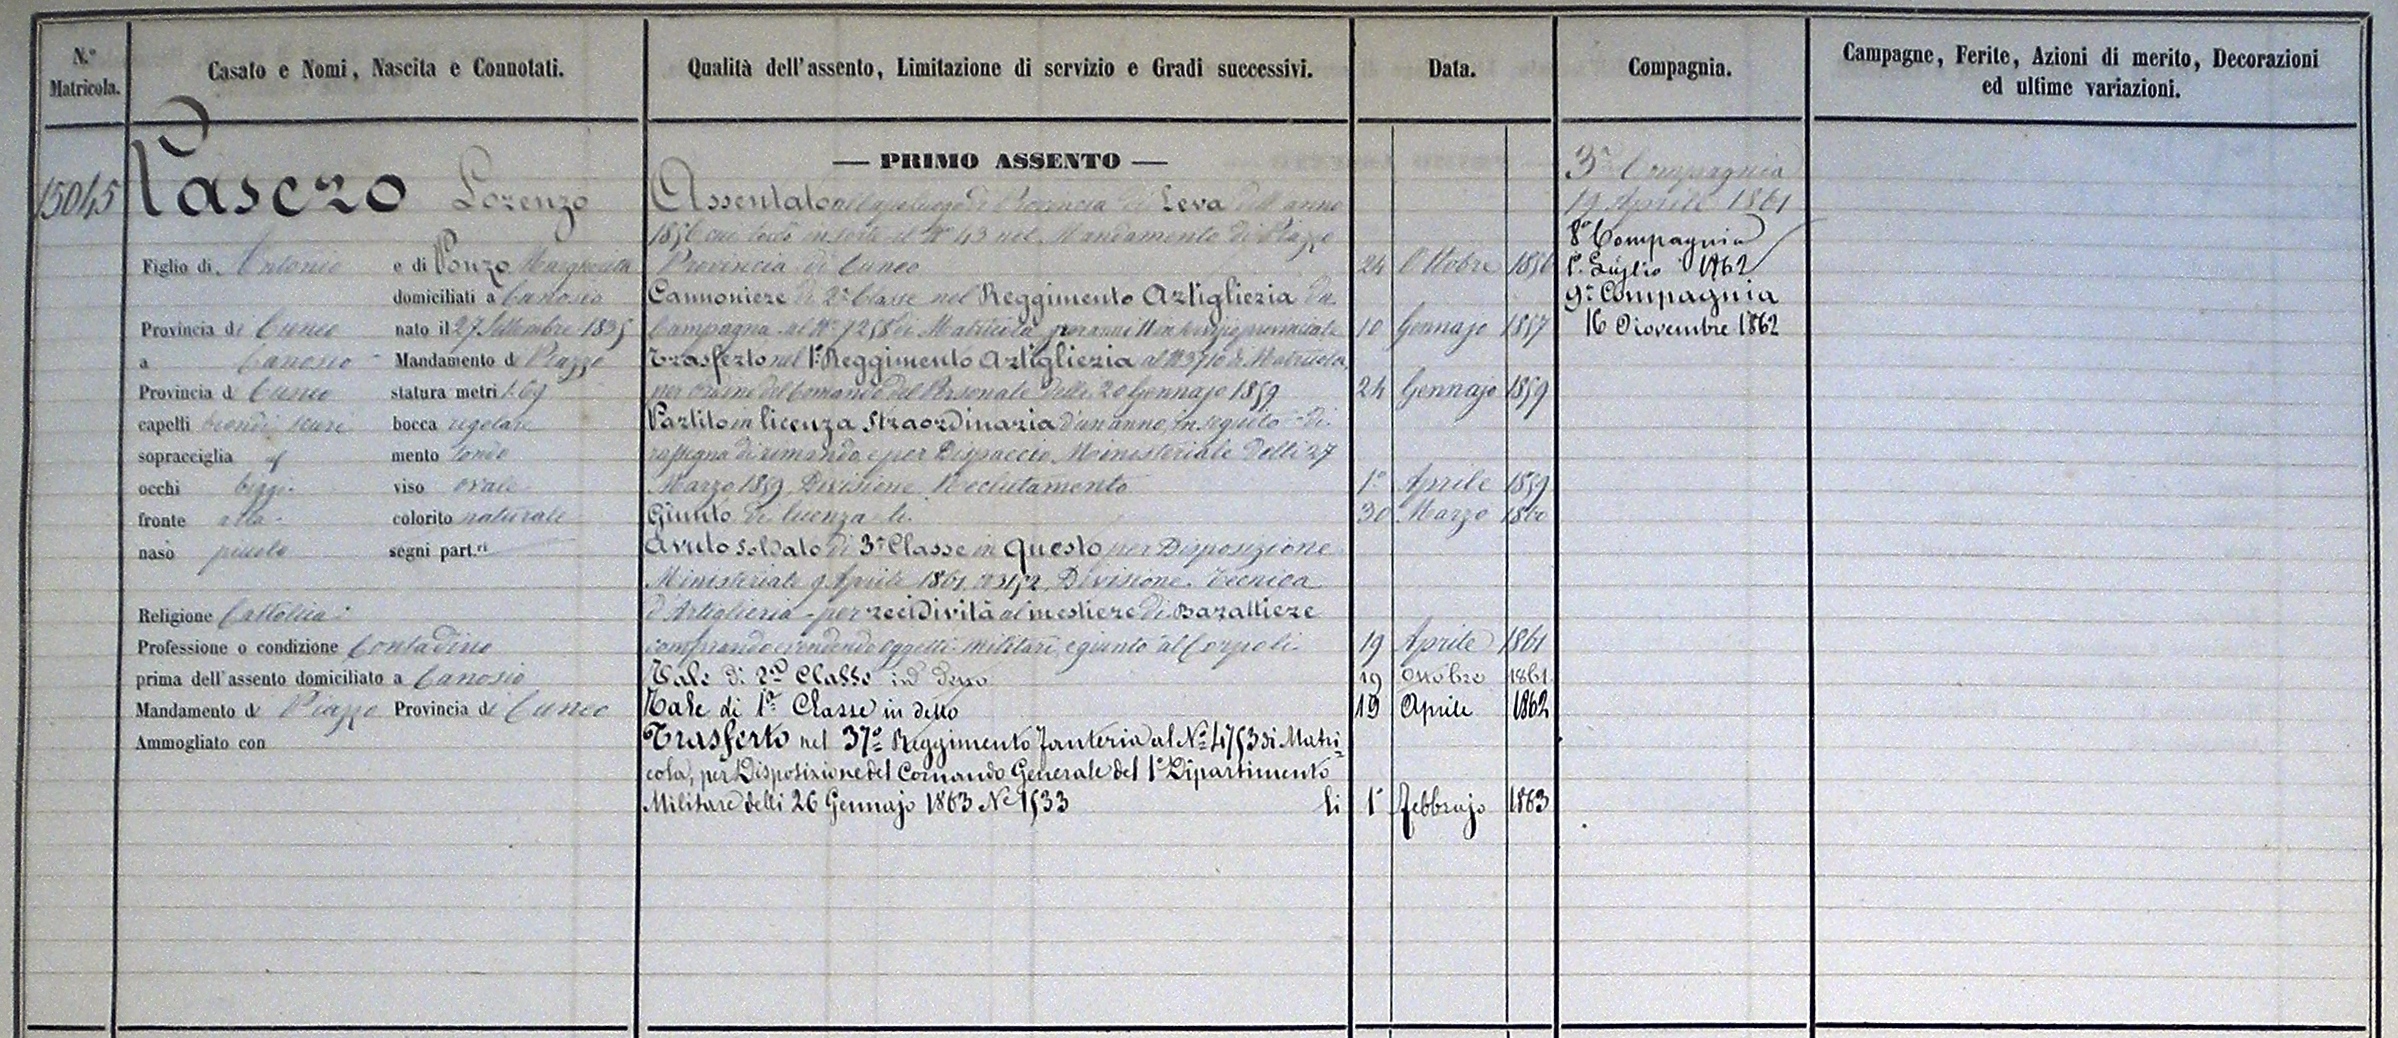 N.º Matricola.
Casato e Nomi, Nascita e Connotati.
Qualità dell'assento, Limitazione di servizio e Gradi successivi.
Data.
Compagnia.
Campagne, Ferite, Azioni di merito, Decorazioni
ed ultime variazioni.
15045
Pasero Lorenzo
Figlio di Antonio e di Ponzo Margherita
domiciliati a Canosio
Provincia di Cuneo nato il 27 Settembre 1835
a Canosio Mandamento di Prazzo
Provincia di Cuneo statura metri 1.69
capelli biondi scuri bocca regolare
sopracciglia id mento tondo
occhi bigi viso ovale
fronte alta colorito naturale
naso piccolo segni part.ri
Religione Cattolica
Professione o condizione Contadino
prima dell'assento domiciliato a Canosio
Mandamento di Prazzo Provincia di Cuneo
Ammogliato con
— PRIMO ASSENTO —
Assentato di Provincia di Leva dell'anno
1856 cui toccò in sorte il Nº 43 nel Mandamento di Prazzo
Provincia di Cuneo 24 Ottobre 1856
Cannoniere di 2ª Classe nel Reggimento Artiglieria da
Campagna al Nº 7258 di Matricola per anni 11 in servizio provinciale 10 Gennajo 1857
Trasferto nel 1º Reggimento Artiglieria al Nº 3710 di Matricola,
per Ordine del Comando del Personale delli 20 Gennajo 1859 24 Gennajo 1859
Partito in licenza straordinaria d'un anno, in seguito di
rassegna di rimando, e per Dispaccio Ministeriale delli 27
Marzo 1859, Divisione Reclutamento 1º Aprile 1859
Giunto di licenza li 30 Marzo 1860
Avuto soldato di 3ª Classe in questo per Disposizione
Ministeriale 9 Aprile 1861 Nº 3152, Divisione Tecnica
d'Artiglieria - per recidività al mestiere di Barattiere
comprando e vendendo oggetti militari, e giunto al Corpo li 19 Aprile 1861
Tale di 2ª Classe in detto 19 Ottobre 1861
Tale di 1ª Classe in detto 19 Aprile 1862
Trasferto nel 37º Reggimento Fanteria al Nº 4753 di Matri=
cola, per Disposizione del Comando Generale del 1º Dipartimento
Militare delli 26 Gennajo 1863 Nº 1533 li 1º Febbrajo 1863
3ª Compagnia
19 Aprile 1861
8ª Compagnia
1º Luglio 1862
9ª Compagnia
16 Novembre 1862